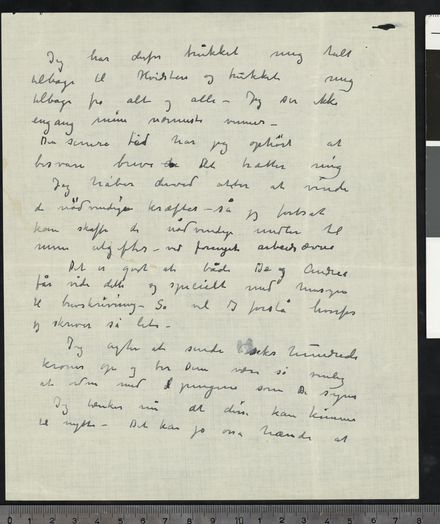 Jeg har derfor trukket mig helt
tilbage til Hvidsten og trukket mig
tilbage fra alt og alle – Jeg ser ikke
engang mine nærmeste venner –
Den senere tid har jeg ophört at
besvare breve Det trætter mig
Jeg håber derved atter at vinde
de nödvendige kræfter – så jeg fortsat
kan skaffe de nödvendige midler til
mine utgifter – ved fornyet arbeidsævne
Det er godt at både De og Andre
får vide dette og specielt med hensyn
til brevskrivning – Så vil De forstå hvorfor
jeg skriver så lite –
Jeg agter at sende seks hundrede
kroner op og ber Dem være så venlig
at ordne med pengene som De synes
Jeg tænker nu at disse kan komme
til nytte – Det kan jo også hænde at
0 1 2 3 4 5 6 7 8 9 10 1 2 3 4 5 6 7 8